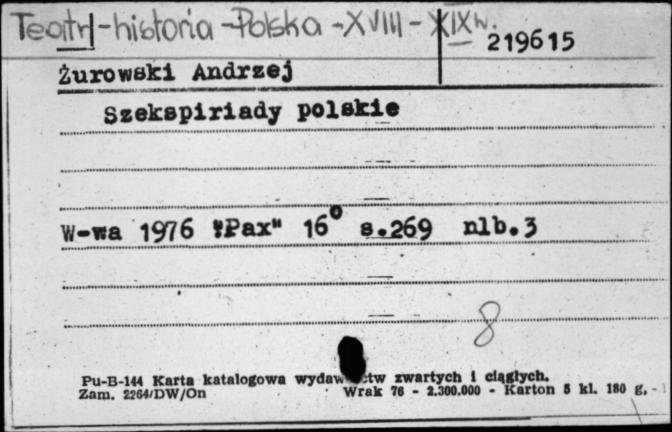 Teatr - historia - Polska - XVIII - XIX w.
219615
Żurowski Andrzej
Szekspiriady polskie
W-wa 1976 "Pax" 16° s.269 nlb.3
8
Pu-B-144 Karta katalogowa wydaw ctw zwartych i ciągłych.
Zam. 2264/DW/On Wrak 76 - 2.300.000 - Karton 5 kl. 180 g.